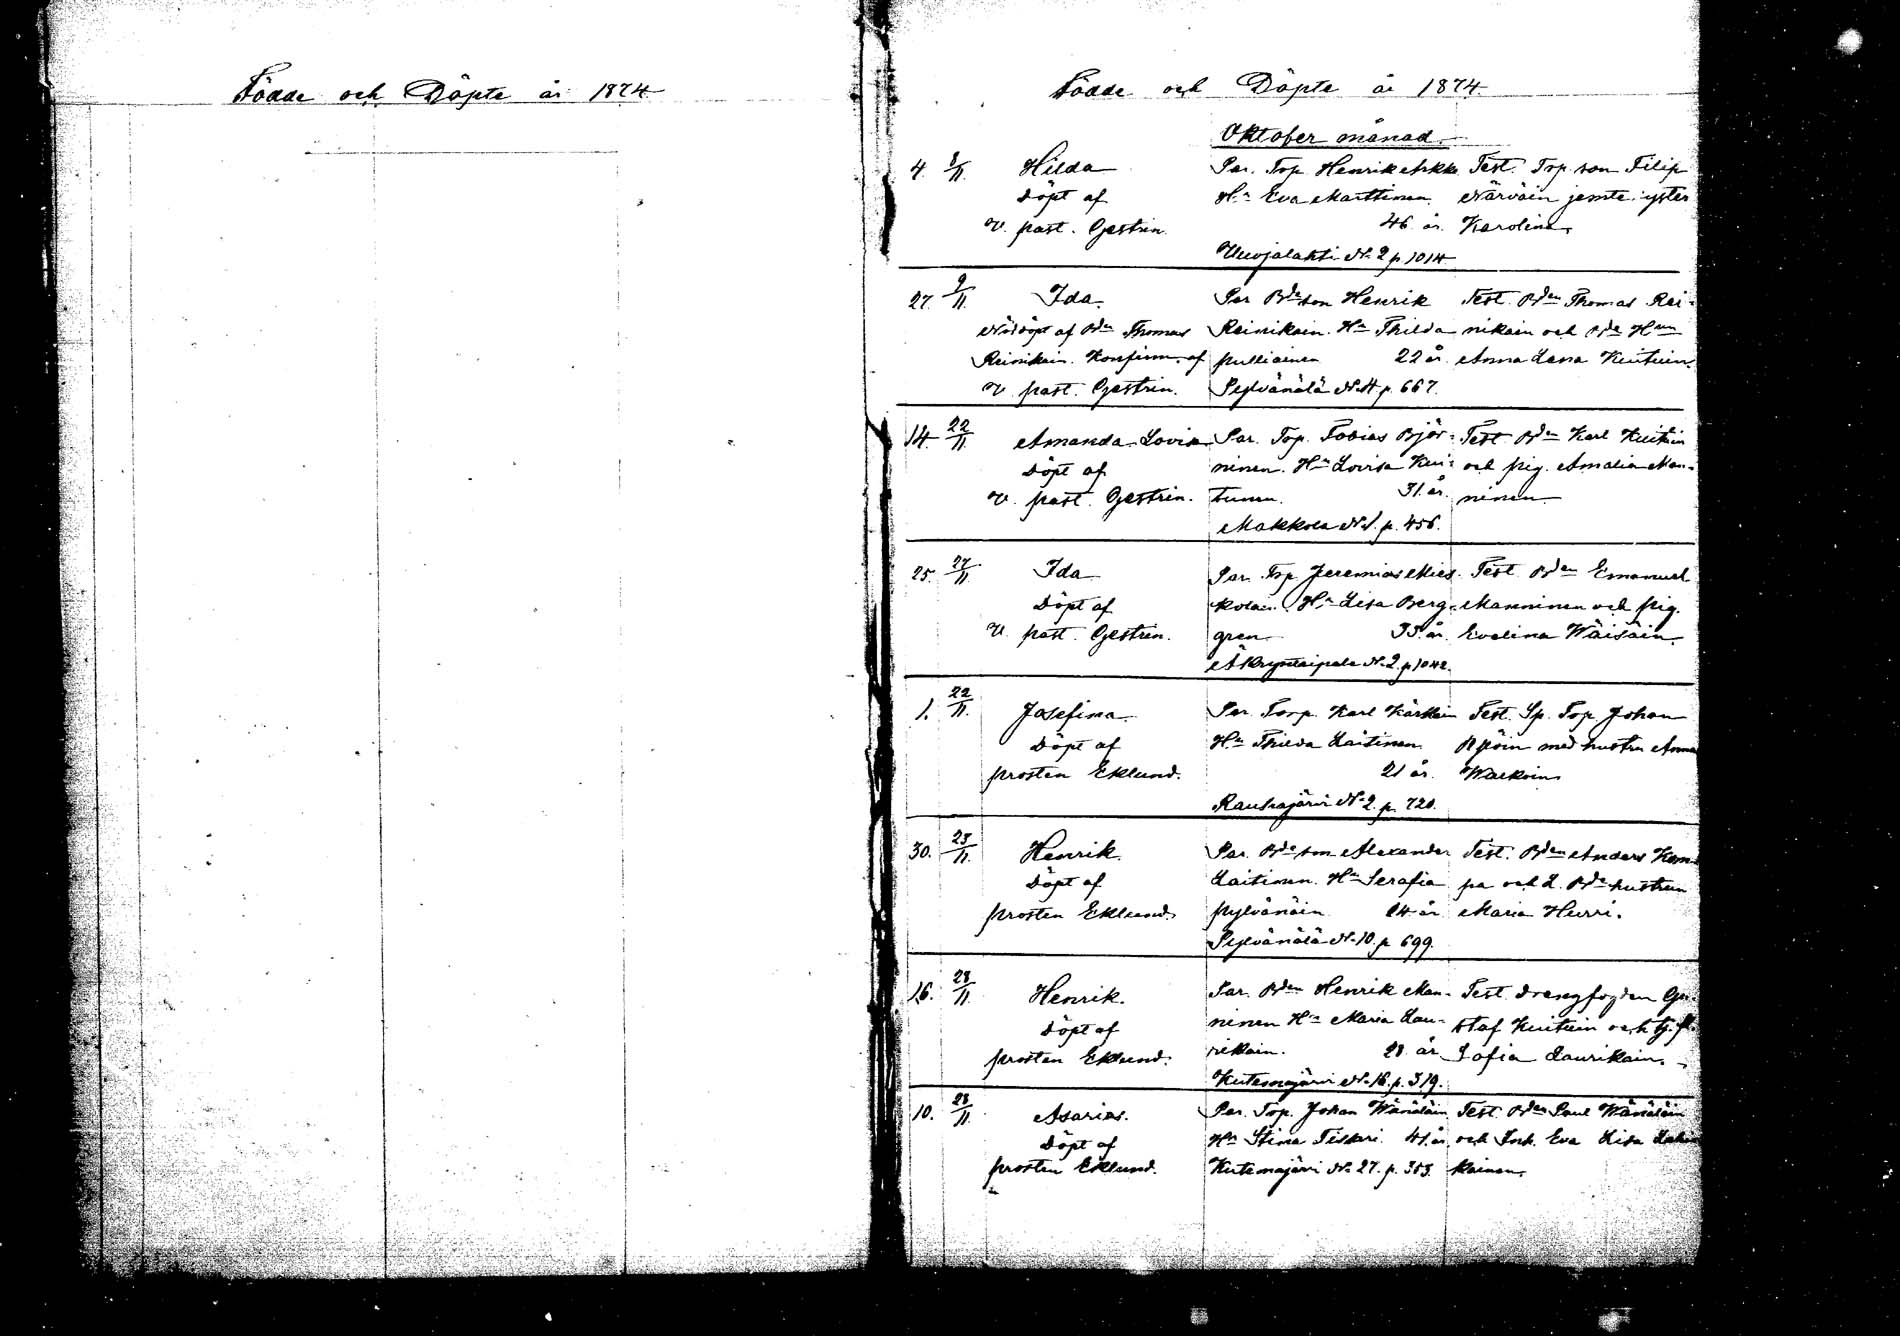 Födde och Döpte år 1874
Födde och Döpte år 1874
Oktober månad
4. 8/11. Hilda
Döpt af
v. past. Gestrin.
Par. Torp. Henrik
Hu Eva Marttinen.
46 år.
Vuojalahti No 2 p. 1014
Test. Torp. son Filip
Närväin jemte syster
Karolina
27. 9/11. Ida.
Nöddöpt af Bden Thomas
Reinikain. Konfirm. af
v. past. Gestrin.
Par. Bdeson Henrik
Reinikain. Hu Thilda
Pulliainen 22 år.
Pylvänälä No 4 p. 667.
Test. Bden Thomas Rei-
nikain och Bde Hun
Anna Lena Kuituin.
14. 22/11 Amanda Lovisa
Döpt af
v. past. Gestrin.
Par. Torp. Tobias Björ-
ninen. Hu Lovisa Kui-
tunen. 31 år.
Makkola No 1. p. 456.
Test. Bden Karl Kuituin
och pig. Amalia Man-
ninen
25. 27/11. Ida
Döpt af
v. past. Gestrin.
Par. Torp. Jeremias Mies-
kolain. Hu Lisa Berg-
gren 33 år.
No 2. p. 1042.
Test. Bden Emanuel
Manninen och pig.
Evelina Wäisäin.
1. 22/11. Josefina
Döpt af
prosten Eklund.
Par. Torp. Karl Kärkkäin
Hu Thilda Laitinen
21 år.
Rauhajärvi No 2. p. 720.
Test. Sp. Torp. Johan
med hustru Anna
30. 23/11. Henrik.
Döpt af
prosten Eklund.
Par. Bdeson Alexander
Laitinen. Hu Serafia
Pylvänäin 24 år
Pylvänälä No 10. p 699.
Test. Bden Anders Kem-
pa och L. Bdehustrun
Maria Hurri.
16. 28/11. Henrik.
Döpt af
prosten Eklund.
Par. Bden Henrik Man-
ninen Hu Maria Lau-
rikain. 28 år
Kutemajärvi No 16. p. 319.
Test. Drengfogden Gu-
staf Kuituin och tj. fl.
Sofia Laurikain.
10. 28/11. Asarias.
Döpt af
prosten Eklund.
Par. Torp. Johan Wänäläin
Hu Stina Tiskari. 41 år
Kutemajärvi No 27. p. 353.
Test. Bden Paul Wänäläin
och Inh. Eva Lisa
kainen.